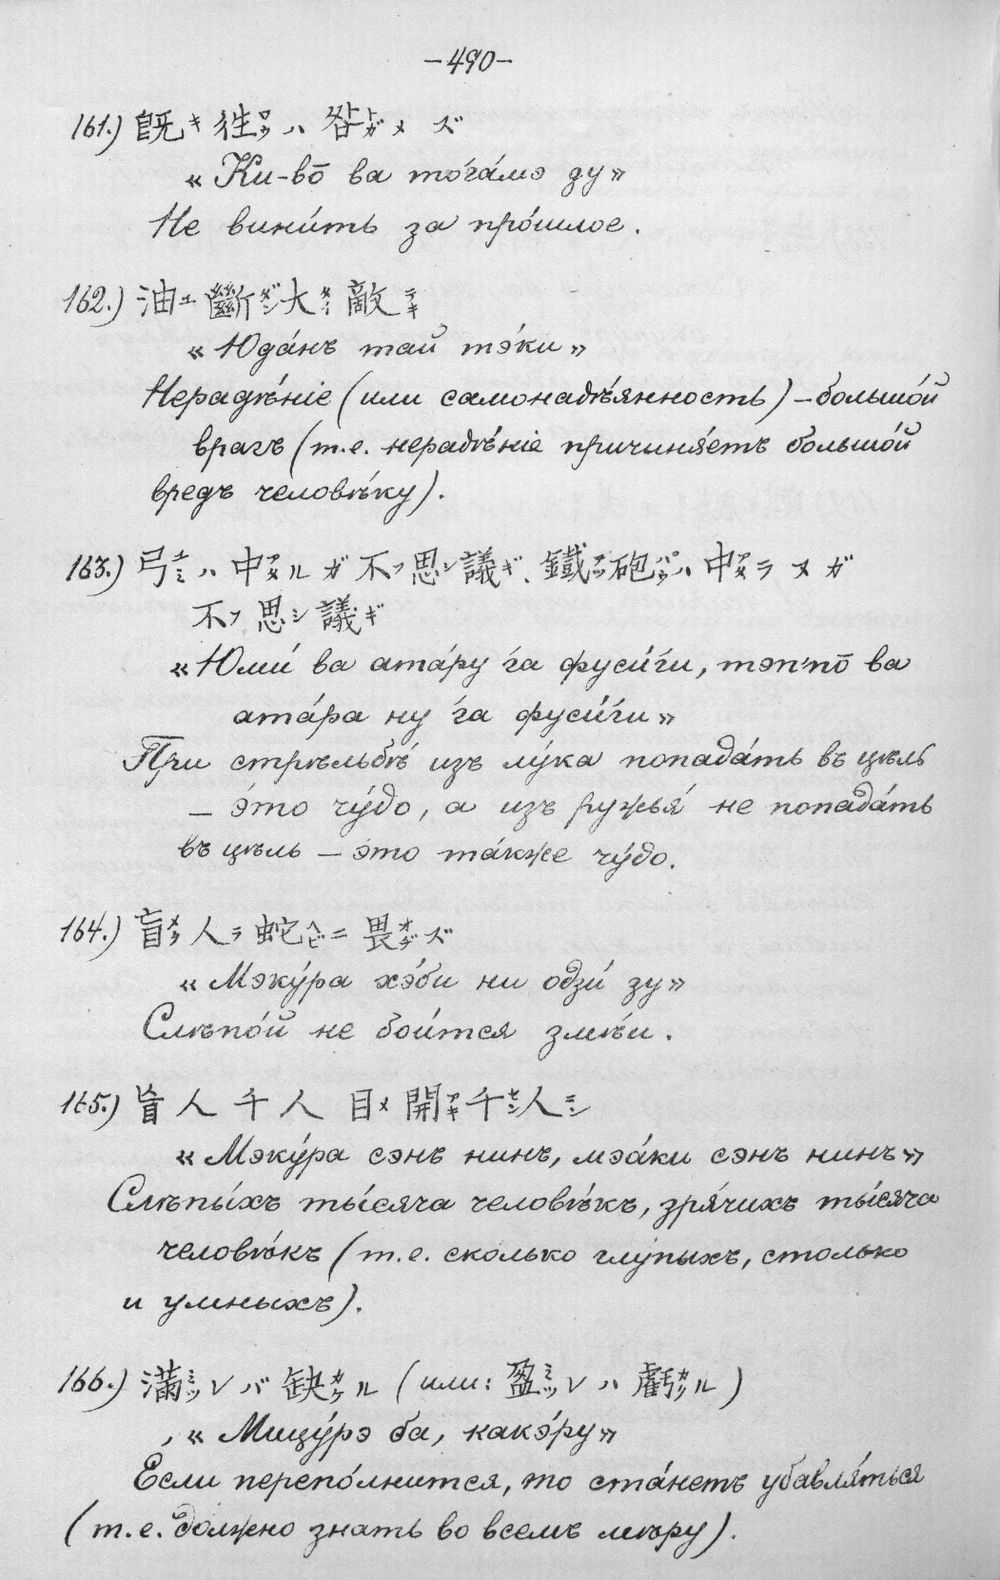 –490–
161.) 既キ往ワウハ咎トガメズ
«Ки-вō ва то́га́мэ ду»
Не вини́ть за про́шлое.
162.) 油ユ斷ダン大タイ敵テキ
«Юда́нъ тай тэ́ки»
Нерадѣ́ніе (или самонадѣ́янность) – большо́й
врагъ (т.е. нерадѣ́ніе причиня́етъ большо́й
вредъ человѣ́ку).
163.) 弓ユミハ中アタルガ不フ思シ議ギ、鐵テツ砲パウハ中アタラヌガ
不フ思シ議ギ
«Юми́ ва ата́ру га фуси́ги, тэп'пō ва
ата́ра ну га фуси́ги»
При стрѣльбѣ́ изъ лу́ка попада́ть въ цѣль
– э́то чу́до, а изъ ружья́ не попада́ть
въ цѣль – э́то та́кже чу́до.
164.) 盲メク人ラ蛇ヘビニ畏オヂズ
«Мэку́ра хэ́би ни одзи́ зу»
Слѣпо́й не бои́тся змѣи́.
165.) 盲人千人目メ開アキ千セン人ニン
«Мэку́ра сэнъ нинъ, мэа́ки сэнъ нинъ»
Слѣпы́хъ ты́сяча человѣ́къ, зря́чихъ ты́сяча
человѣ́къ (т.е. сколько глу́пыхъ, столько
и умныхъ).
166.) 滿ミツレバ缺カケル (или: 盈ミツレハ虧カケル)
«Мицу́рэ ба, какэ́ру»
Если перепо́лнится, то ста́нетъ убавля́ться
(т.е. должно знать во всемъ мѣру).